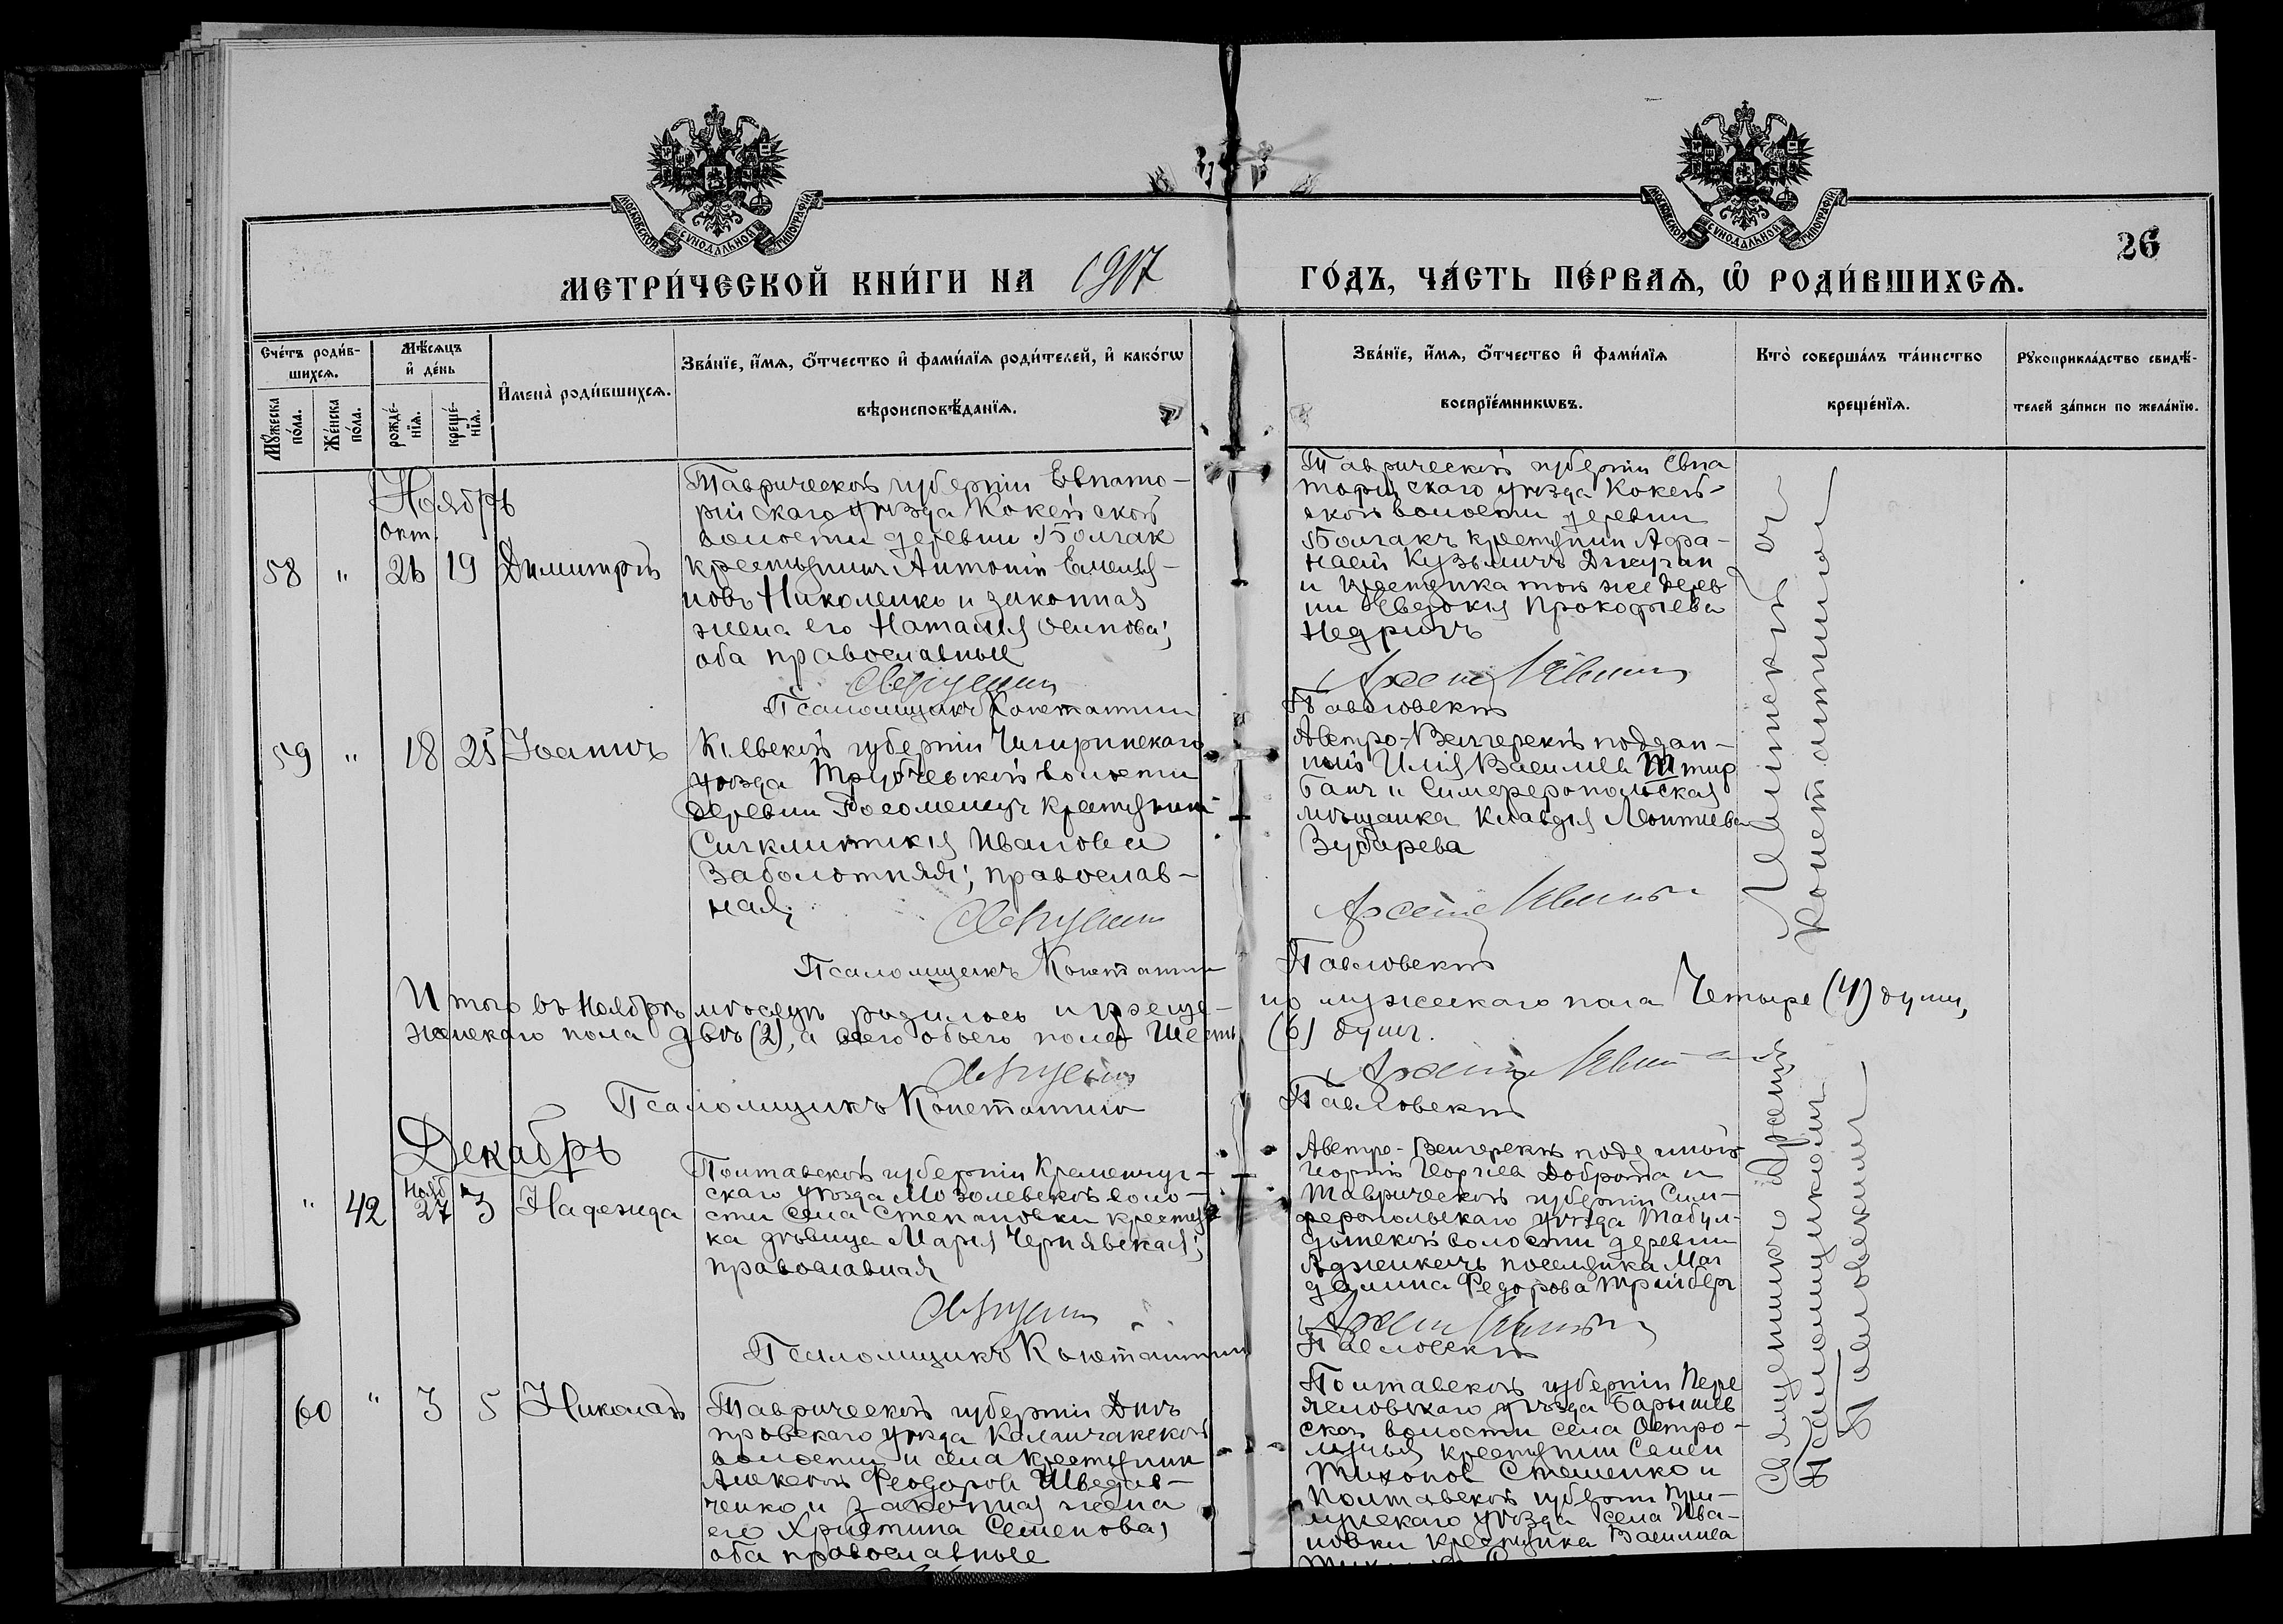 МОСКОВСКОЙ СѴНОДАЛЬНОЙ ТИПОГРАФІИ
МОСКОВСКОЙ СѴНОДАЛЬНОЙ ТИПОГРАФІИ
26
МЕТРИ́ЧЕСКОЙ КНИ́ГИ НА 1917 ГО́ДЪ, ЧА́СТЬ ПЕ́РВАѦ, Ѡ҆ РОДИ́ВШИХСѦ.
Сче́тъ роди́в-
шихсѧ.
Мꙋ́жеска по́ла.
Же́нска по́ла.
Мѣ́сѧцъ
и҆ де́нь
рожде́-
нїѧ.
креще́-
нїѧ.
И҆мена̀ роди́вшихсѧ.
Зва́нїе, и҆́мѧ, ѻ҆́тчество и҆ фами́лїѧ роди́телей, и҆ како́гѡ
вѣроисповѣ́данїѧ.
Зва́нїе, и҆́мѧ, ѻ҆́тчество и҆ фами́лїѧ
воспрїе́мникѡвъ.
Кто̀ соверша́лъ та́инство
креще́нїѧ.
Рꙋкоприкла́дство свидѣ́-
телей за́писи по жела́нїю.
Ноябрь
окт.
58 " 26 19 Димитрій
Таврической губерніи Евпато-
рійскаго уѣзда Кокейской
волости деревни Болгак
крестьянин Антоній Емелья-
новъ Николенко и законная
жена его Наталія Осипова;
оба православные
Псаломщикъ Константин
Таврической губерніи Евпа
торійскаго уѣзда Кокей-
ской волости деревни
Болгакъ крестьянин Афа-
насій Кузьмичъ
и крестьянка той же дерев
ни Евдокія Прокофьева
Павловскій
59 " 18 25 Іоаннъ
Кіевской губерніи Чигиринскаго
уѣзда волости
деревни крестьянка
Синклитикія Иванова
Заболотняя; православ-
ная;
Псаломщикъ Константин
Австро-Венгерскій поддан-
ный Илія Васильев
и Симферопольская
мѣщанка Клавдія Леонтьева
Зубарева
Павловскій
Священникъ
Константин
Итого въ Ноябрѣ мѣсяцѣ родилось и креще- но мужескаго пола Четыре (4) души,
женскаго пола двѣ (2), а всего обоего пола Шесть (6) душъ.
Псаломщикъ Константин Павловскій
Декабрь
Нояб
" 42 27 3 Надежда
Полтавской губерніи Кременчуг-
скаго уѣзда воло-
сти села Степановки крестьян
ка дѣвица Марія Чернявская;
православная
Псаломщикъ Константин
Австро-Венгерскій
Георгій Георгіев Доброта и
Таврической губерніи Сим-
феропольскаго уѣзда Табул-
динской волости деревни
Аджикечь поселянка Маг
далина Федорова
Павловскій
60 " 3 5 Николай
Таврической губерніи Днѣ
провскаго уѣзда Каланчакской
волости и села крестьянин
Алексѣй Феодоров Шведов-
ченко и законная жена
его Христина Семенова;
оба православные
Полтавской губерніи Пере
яславскаго уѣзда Барышев
ской волости села Остро-
лучья крестьянин Семен
Тихонов Стеценко и
Полтавской губерніи При-
лукскаго уѣзда села Ива-
новки крестьянка Василиса
Священникъ Арсеній
псаломщикомъ
Павловскимъ